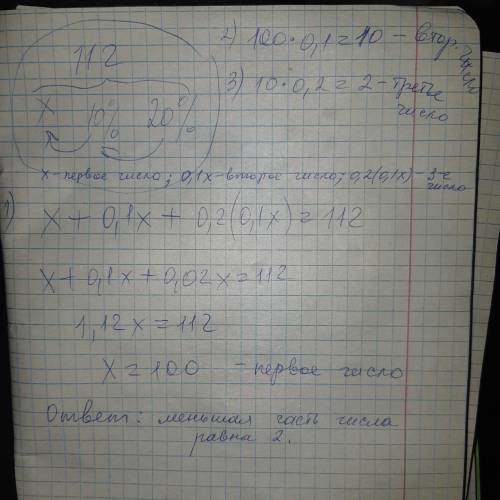 112
x 10% 20%
x - первое число; 0,1x - второе число; 0,2(0,1x) - 3-е число
1) x + 0,1x + 0,2(0,1x) = 112
x + 0,1x + 0,02x = 112
1,12x = 112
x = 100 - первое число
2) 100 · 0,1 = 10 - втор. число
3) 10 · 0,2 = 2 - третье число
Ответ: меньшая часть числа
равна 2.